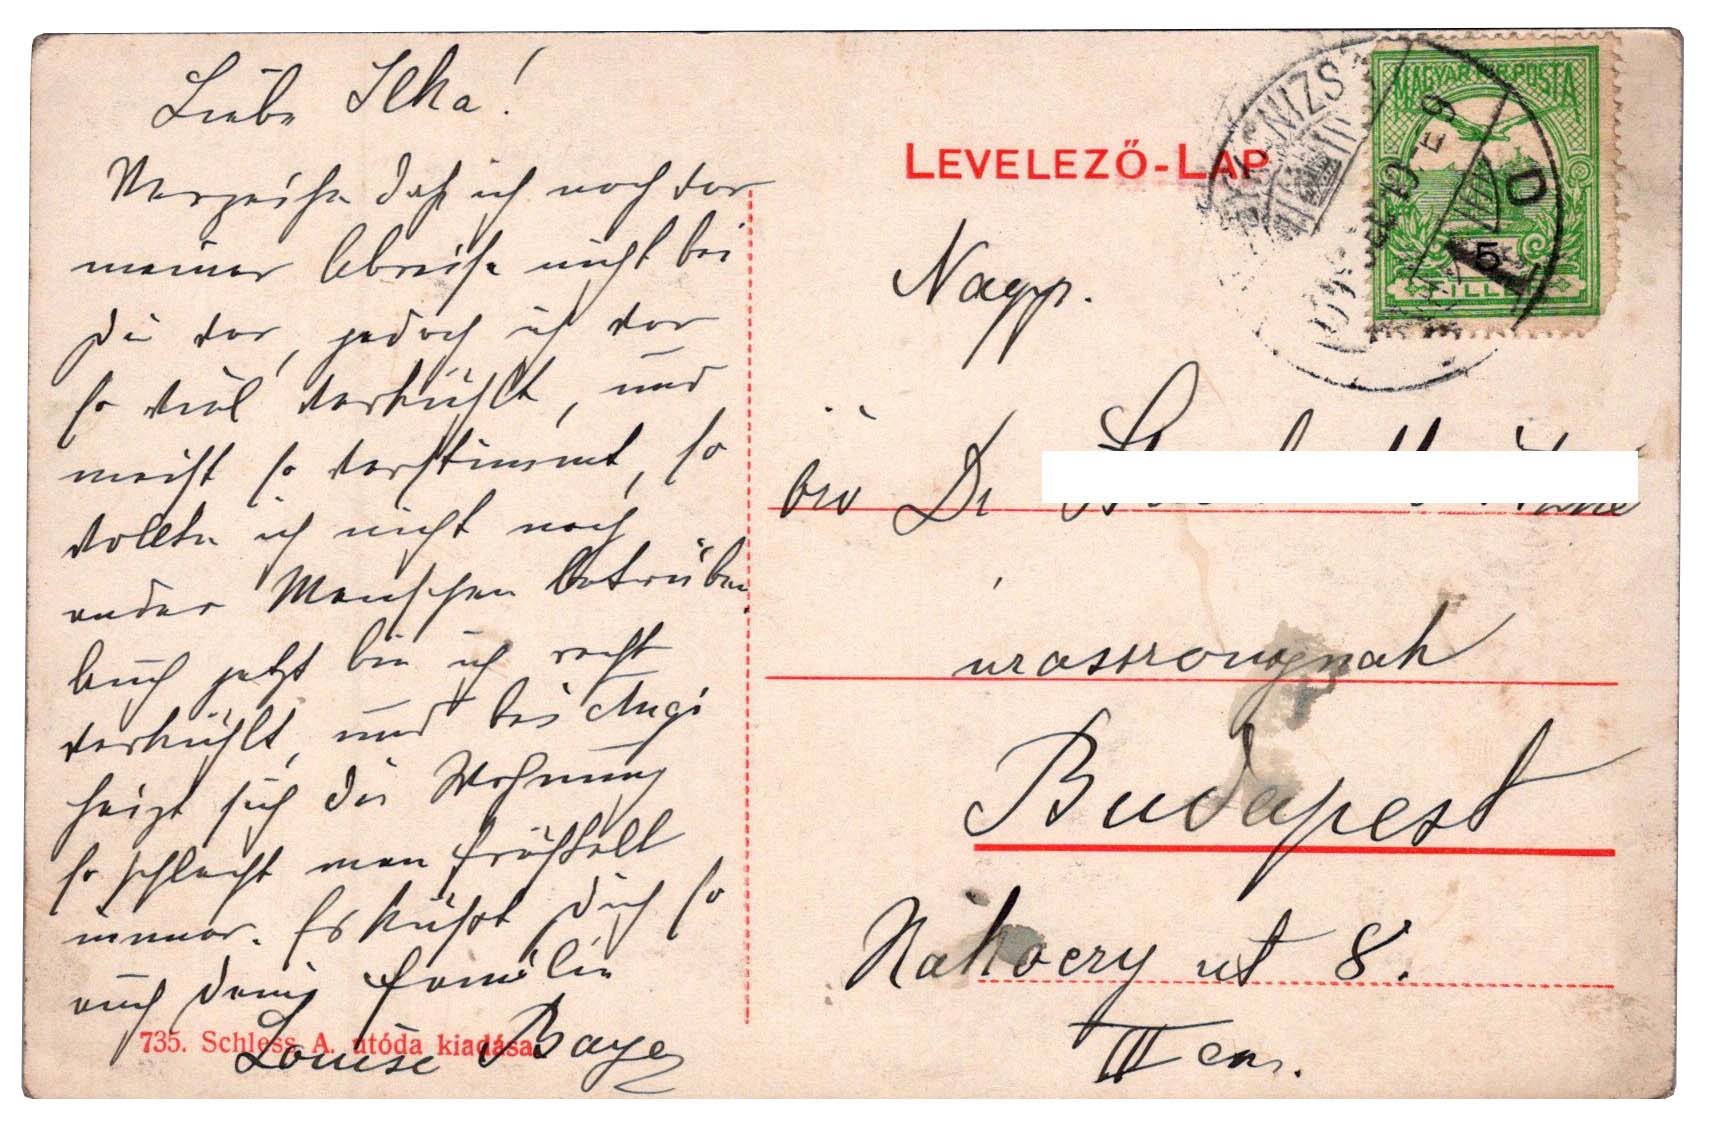 Liebe Ilka!
Verzeihe daß ich noch vor
meiner Abreise nicht bei
Dir war, jedoch ich war
so viel verkühlt, und
meist so verstimmt, so
wollte ich nicht noch
ander Menschen betrüben.
Auch jetzt bin ich recht
verkühlt, und bei
heizt sich die Wohnung
so schlecht man fröstelt
immer. Es küßt Dich so
auch Deine Familie
Louise Baye
735. Schless A. utóda kiadása
LEVELEZŐ-LAP
MAGYAR KIR. POSTA
NIZS
D
5
FILLÉR
Nagys.
Dr
urasszonynak
Budapest
út 8.
III em.